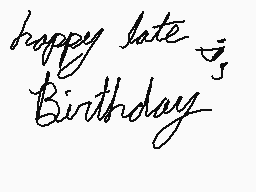 happy late
Birthday